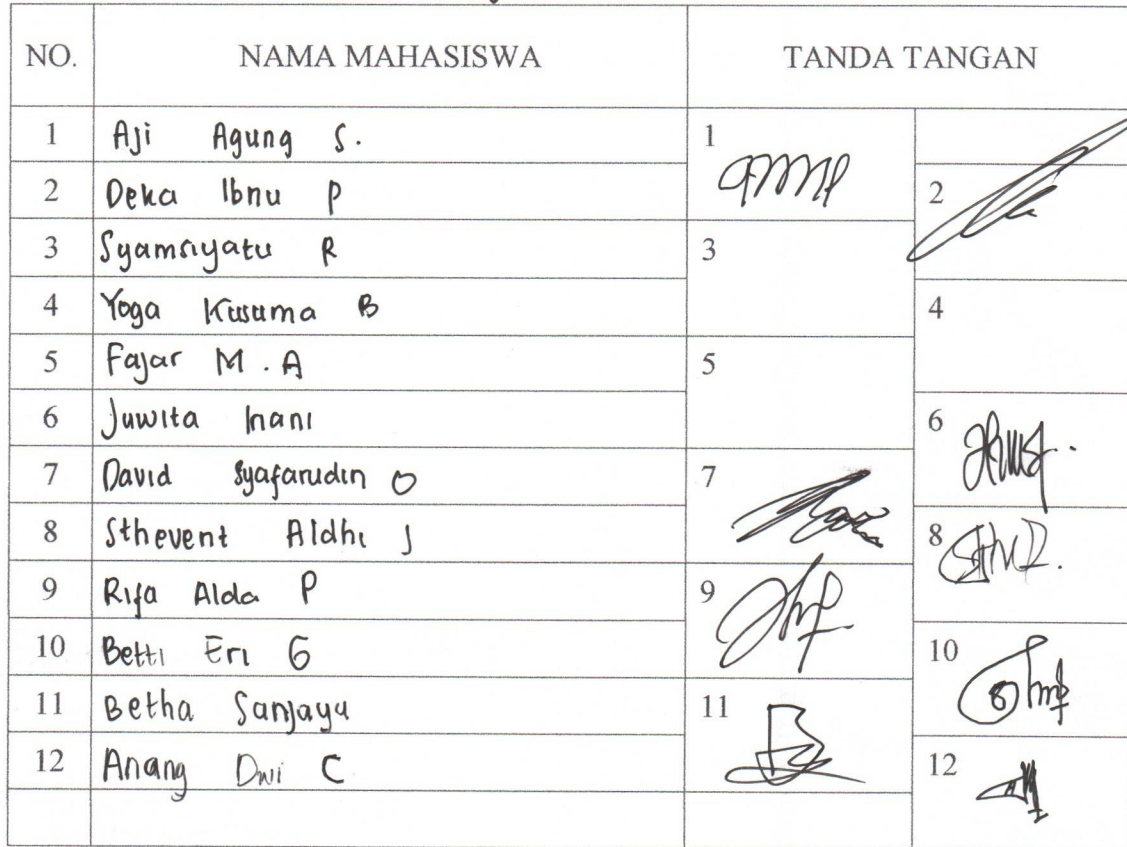 NO. NAMA MAHASISWA TANDA TANGAN
1 Aji Agung S. 1
2 Deka Ibnu P 2
3 Syamsiyatu R 3
4 Yoga Kusuma B 4
5 Fajar M . A 5
6 Juwita Inani 6
7 David Syafarudin O 7
8 Sthevent Aldhi J 8
9 Rifa Alda P 9
10 Betti Eri G 10
11 Betha Sanjaya 11
12 Anang Dwi C 12